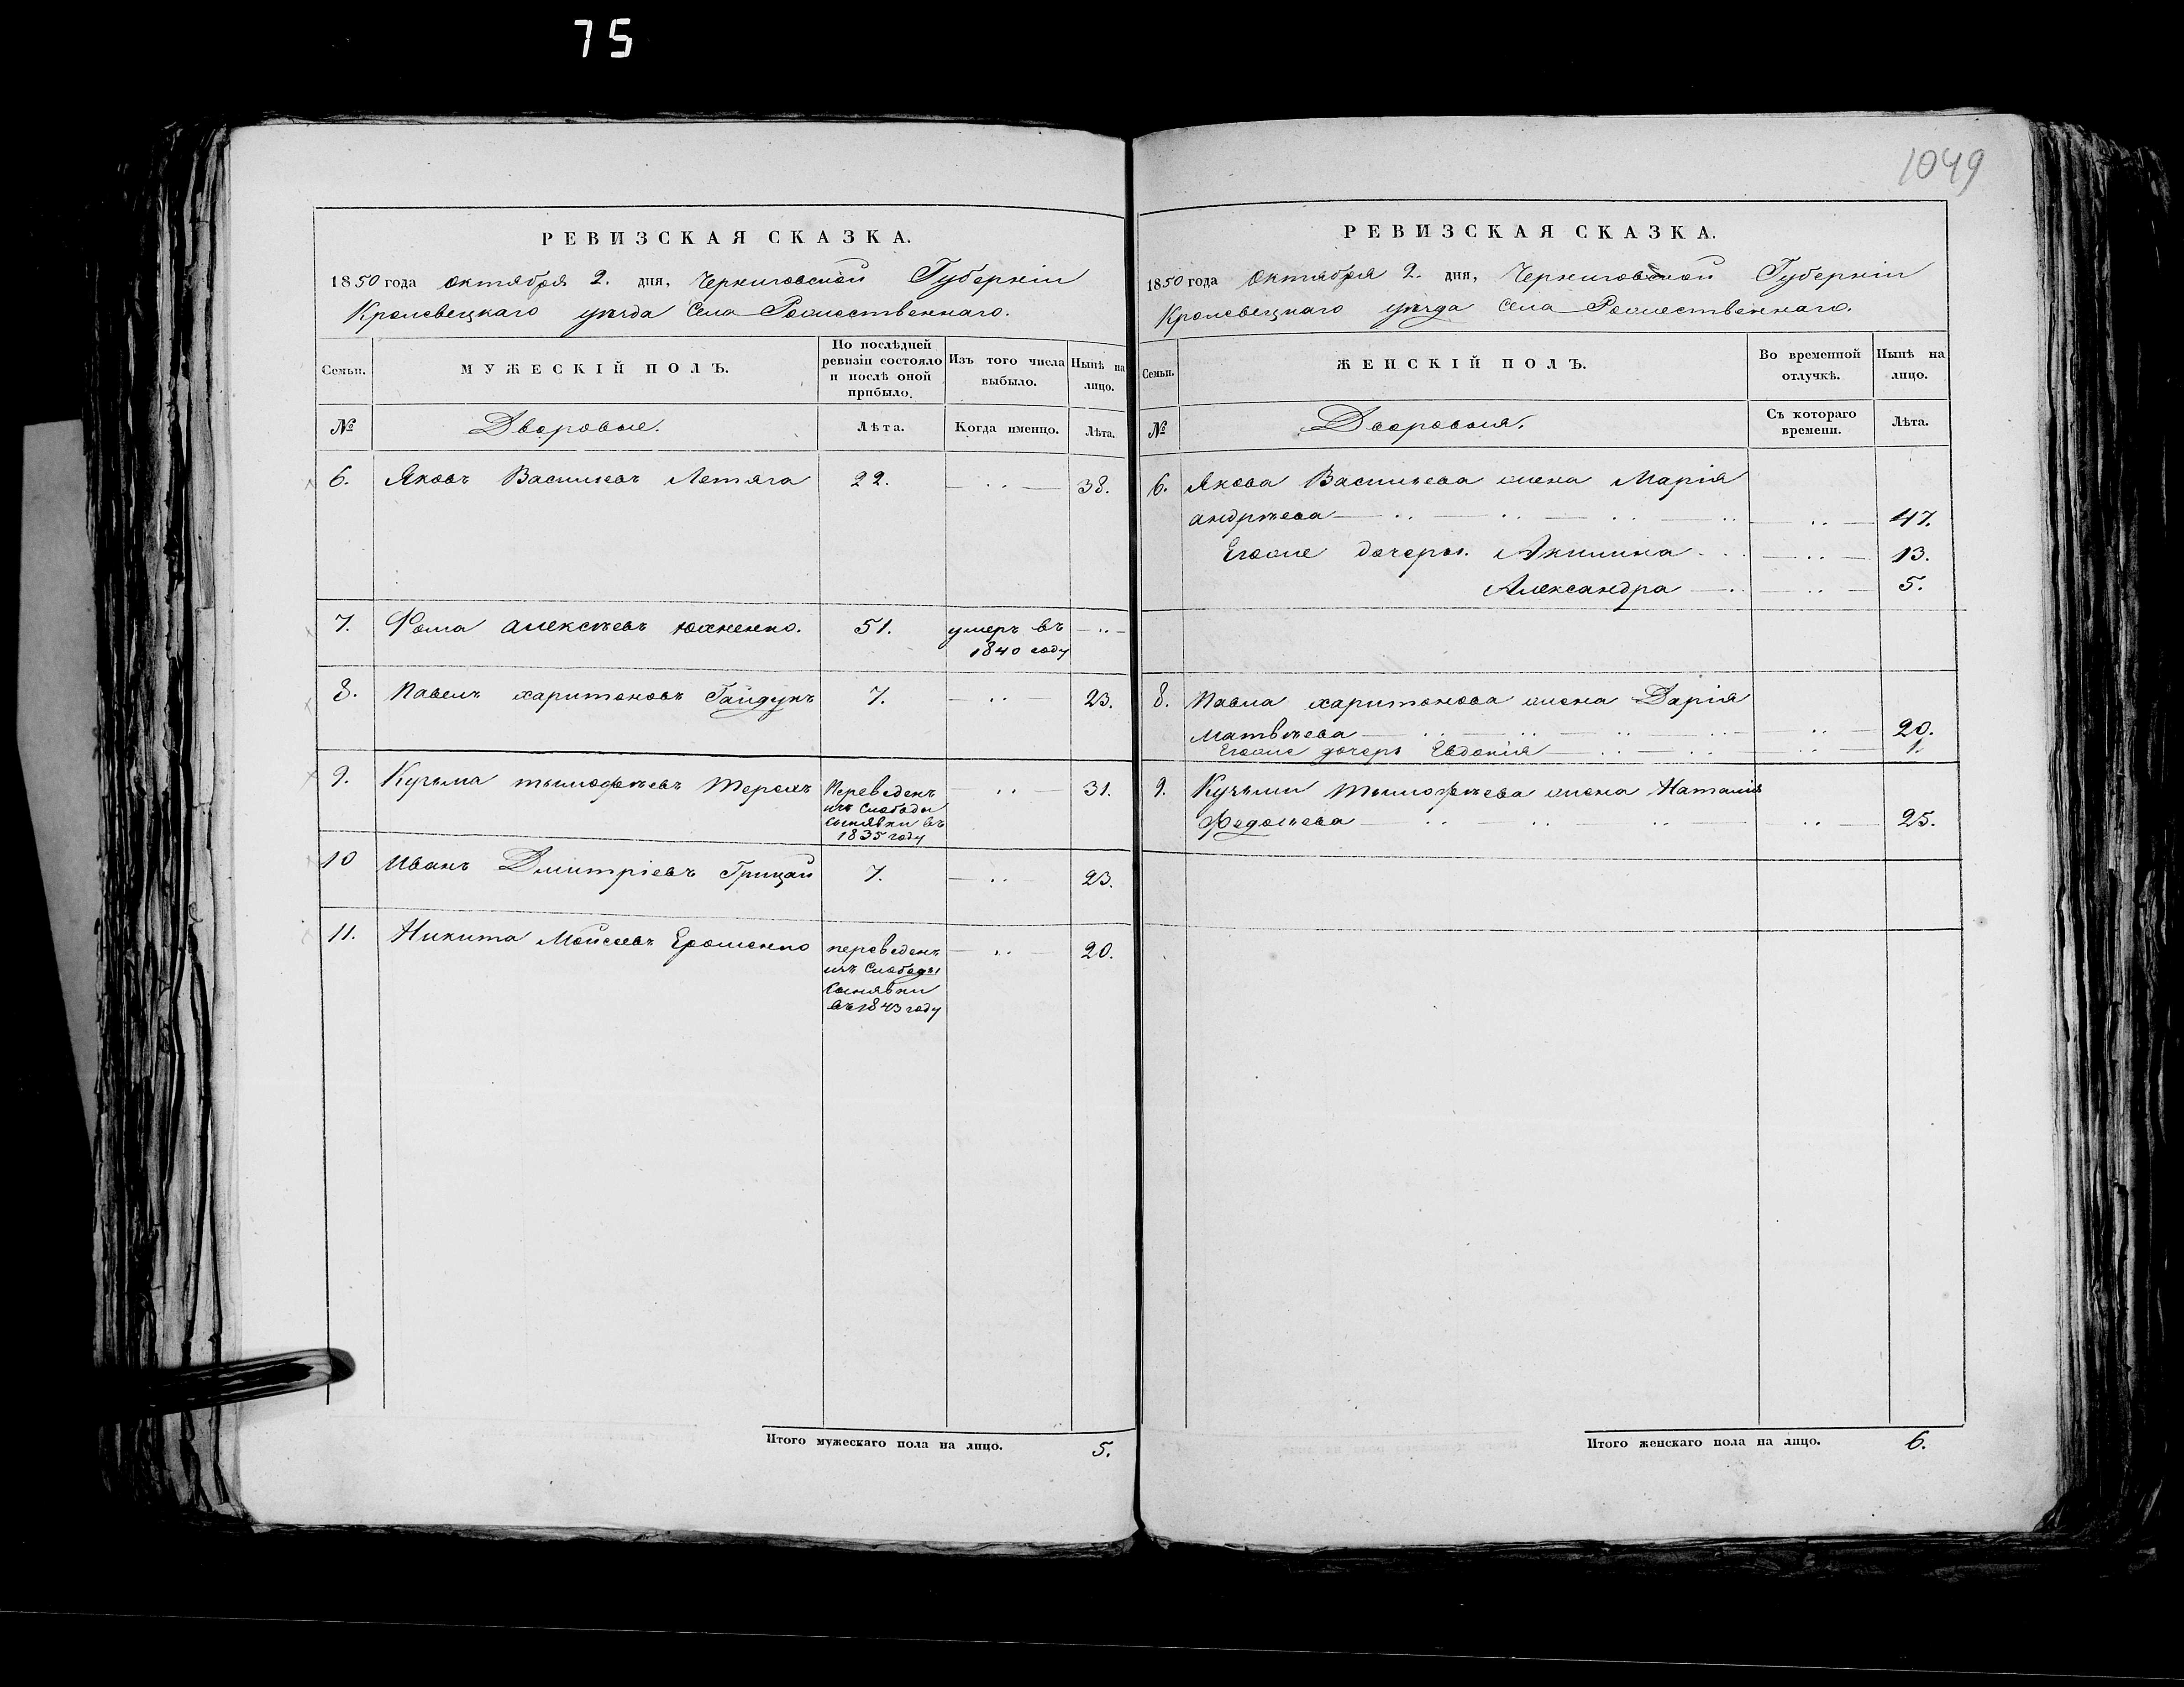 75
РЕВИЗСКАЯ СКАЗКА.
1850 года октября 2. дня, Черниговской Губерніи
Кролевецкаго уѣзда Села Рожественнаго.
Семьи.
МУЖЕСКІЙ ПОЛЪ.
По послѣдней
ревизіи состояло
и послѣ оной
прибыло.
Изъ того числа
выбыло.
Нынѣ на
лицо.
№
Дворовые.
Лѣта.
Когда именно.
Лѣта.
6. Яковъ Васильевъ Летяга 22. 38.
7. Фома алексѣевъ Юхненко. 51. умеръ въ
1840 году
8. Павелъ харитоновъ Гайдукъ 7. 23.
9. Кузьма тымофѣевъ Терехъ Переведенъ 31.
изъ Слободы
въ
1835 году
10 Иванъ Дмитріевъ Грицай 7. 23.
11. Никита Мойсеевъ Ерошенко переведенъ 20.
изъ Слободы
въ 1843 году
Итого мужескаго пола на лицо. 5.
1049
РЕВИЗСКАЯ СКАЗКА.
1850 года Октября 2. дня, Черниговской Губерніи
Кролевецкаго уѣзда Села Рожественнаго.
Семьи.
ЖЕНСКІЙ ПОЛЪ.
Во временной
отлучкѣ.
Нынѣ на
лицо.
№
Дворовыя.
Съ котораго
времени.
Лѣта.
6. Якова Васильева жена Марія
андрѣева 47.
Егоже дочеры. Акилина 13.
Александра 5.
8. Павла харитонова жена Дарія
Матвѣева 20.
Егоже дочерь Евдокія 1.
9. Кузьмы Тымофѣева жена Наталія
Федосѣева 25.
Итого женскаго пола на лицо. 6.